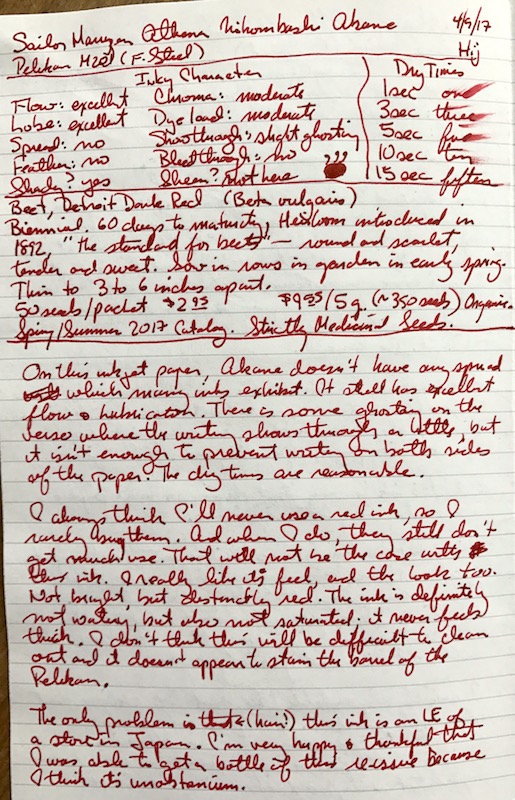 Sailor Maruzen Athena Nihonbashi Akane 4/9/17
Pelikan M20 (F. Steel) Hij
Inky Character Dry Times
Flow: excellent Chroma: moderate 1 sec one
Lube: excellent Dye load: moderate 3 sec three
Spread: no Showthrough: slight ghosting 5 sec five
Feather: no Bleedthrough: no 10 sec ten
Shady? yes Sheen? not here 15 sec fifteen
Beet, Detroit Dark Red (Beta vulgaris)
Biennial. 60 days to maturity, Heirloom introduced in
1892. "the standard for beets" — round and scarlet,
tender and sweet. Sow in rows in garden in early spring.
Thin to 3 to 6 inches apart.
50 seeds/packet $2.95 $9.55/5g (~350 seeds) Organic.
Spring/Summer 2017 Catalog. Strictly Medicinal Seeds.
On this inkjet paper, Akane doesn't have any spread
which many inks exhibit. It still has excellent
flow & lubrication. There is some ghosting on the
verso where the writing shows through a little, but
it isn't enough to prevent writing on both sides
of the paper. The dry times are reasonable.
I always think I'll never use a red ink, so I
rarely buy them. And when I do, they still don't
get much use. That will not be the case with
this ink. I really like its feel, and the look too.
Not bright, but distinctly red. The ink is definitely
not watery, but also not saturated: it never feels
thick. I don't think this will be difficult to clean
out and it doesn't appear to stain the barrel of the
Pelikan.
The only problem is that (hair!) this ink is an LE of
a store in Japan. I'm very happy & thankful that
I was able to get a bottle of this reissue because
I think it's unobtanium.